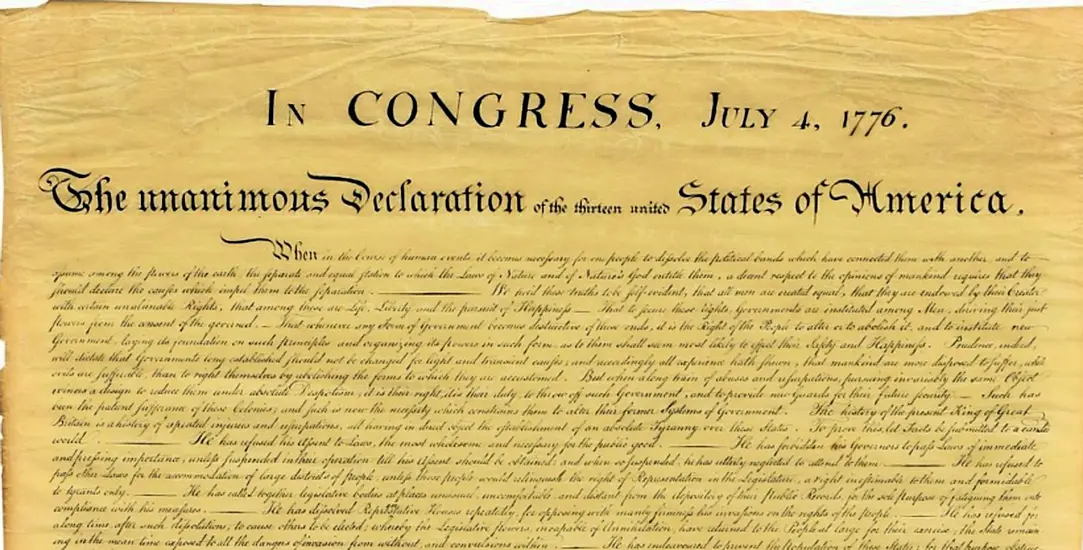 IN CONGRESS, JULY 4, 1776.
The unanimous Declaration of the thirteen united States of America.
When in the Course of human events, it becomes necessary for one people to dissolve the political bands which have connected them with another, and to
assume among the powers of the earth, the separate and equal station to which the Laws of Nature and of Nature's God entitle them, a decent respect to the opinions of mankind requires that they
should declare the causes which impel them to the separation. — We hold these truths to be self-evident, that all men are created equal, that they are endowed by their Creator
with certain unalienable Rights, that among these are Life, Liberty and the pursuit of Happiness. — That to secure these rights, Governments are instituted among Men, deriving their just
powers from the consent of the governed, — That whenever any Form of Government becomes destructive of these ends, it is the Right of the People to alter or to abolish it, and to institute new
Government, laying its foundation on such principles and organizing its powers in such form, as to them shall seem most likely to effect their Safety and Happiness. Prudence, indeed,
will dictate that Governments long established should not be changed for light and transient causes; and accordingly all experience hath shewn, that mankind are more disposed to suffer, while
evils are sufferable, than to right themselves by abolishing the forms to which they are accustomed. But when a long train of abuses and usurpations, pursuing invariably the same Object
evinces a design to reduce them under absolute Despotism, it is their right, it is their duty, to throw off such Government, and to provide new Guards for their future security. — Such has
been the patient sufferance of these Colonies; and such is now the necessity which constrains them to alter their former Systems of Government. The history of the present King of Great
Britain is a history of repeated injuries and usurpations, all having in direct object the establishment of an absolute Tyranny over these States. To prove this, let Facts be submitted to a candid
world. — He has refused his Assent to Laws, the most wholesome and necessary for the public good. — He has forbidden his Governors to pass Laws of immediate
and pressing importance, unless suspended in their operation till his Assent should be obtained; and when so suspended, he has utterly neglected to attend to them. — He has refused to
pass other Laws for the accommodation of large districts of people, unless those people would relinquish the right of Representation in the Legislature, a right inestimable to them and formidable
to tyrants only. — He has called together legislative bodies at places unusual, uncomfortable, and distant from the depository of their Public Records, for the sole purpose of fatiguing them into
compliance with his measures. — He has dissolved Representative Houses repeatedly, for opposing with manly firmness his invasions on the rights of the people. — He has refused for
a long time, after such dissolutions, to cause others to be elected; whereby the Legislative powers, incapable of Annihilation, have returned to the People at large for their exercise; the State remain
ing in the mean time exposed to all the dangers of invasion from without, and convulsions within. — He has endeavoured to prevent the population of these States; for that purpose